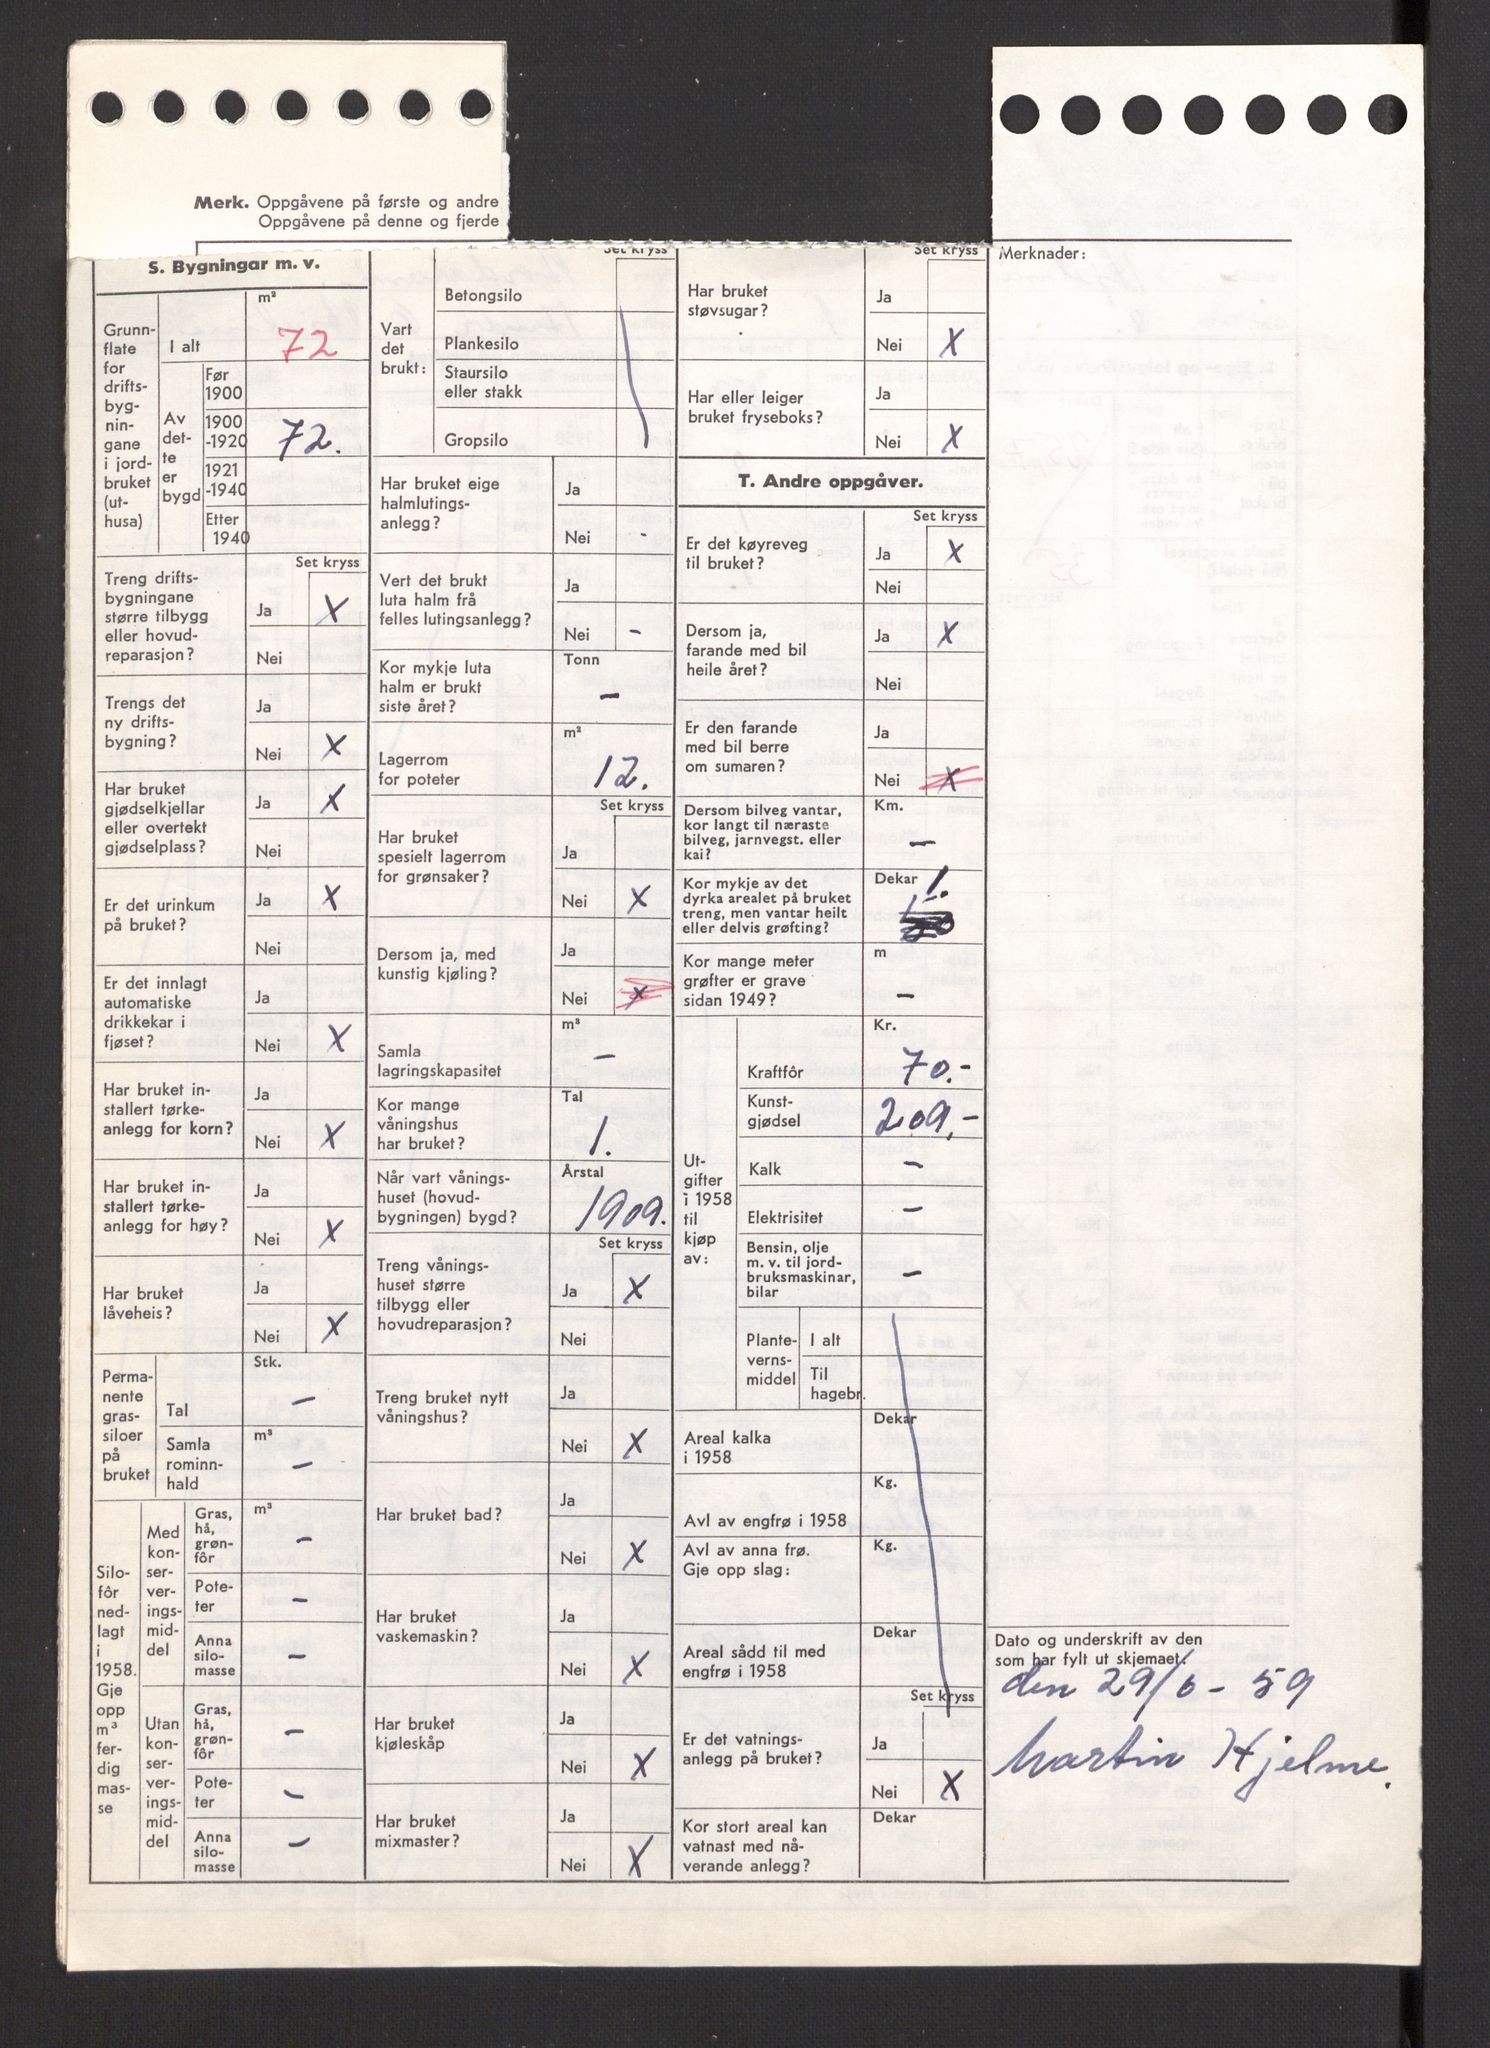 Merk. Oppgåvene på første og andre
Oppgåvene på denne og fjerde
S. Bygningar m. v.
Grunn-
flate
for
drifts-
byg-
nin-
gane
i jord-
bruket
(ut-
husa)
m²
I alt 72
Av
det-
te
er
bygd
Før
1900
1900
-1920 72.
1921
-1940
Etter
1940
Set kryss
Treng drifts-
bygningane
større tilbygg
eller hovud-
reparasjon?
Ja X
Nei
Trengs det
ny drifts-
bygning?
Ja
Nei X
Har bruket
gjødselkjellar
eller overtekt
gjødselplass?
Ja X
Nei
Er det urinkum
på bruket?
Ja X
Nei
Er det innlagt
automatiske
drikkekar i
fjøset?
Ja
Nei X
Har bruket in-
stallert tørke-
anlegg for korn?
Ja
Nei X
Har bruket in-
stallert tørke-
anlegg for høy?
Ja
Nei X
Har bruket
låveheis?
Ja
Nei X
Perma-
nente
gras-
siloer
på
bruket
Stk.
Tal —
m³
Samla
rominn-
hald —
Silo-
fôr
ned-
lagt
i
1958.
Gje
opp
m³
fer-
dig
mas-
se
Med
kon-
ser-
ver-
ings-
mid-
del
m³
Gras,
hå,
grøn-
fôr —
Pote-
ter —
Anna
silo-
masse —
Utan
kon-
ser-
ver-
ings-
mid-
del
Gras,
hå,
grøn-
fôr —
Pote-
ter —
Anna
silo-
masse —
Set kryss
Vart
det
brukt:
Betongsilo
Plankesilo
Staursilo
eller stakk
Gropsilo
Har bruket eige
halmlutings-
anlegg?
Ja
Nei -
Vert det brukt
luta halm frå
felles lutingsanlegg?
Ja
Nei -
Kor mykje luta
halm er brukt
siste året?
Tonn
—
Lagerrom
for poteter
m²
12.
Set kryss
Har bruket
spesielt lagerrom
for grønsaker?
Ja
Nei X
Dersom ja, med
kunstig kjøling?
Ja
Nei X
Samla
lagringskapasitet
m³
—
Kor mange
våningshus
har bruket?
Tal
1.
Når vart vånings-
huset (hovud-
bygningen) bygd?
Årstal
1909.
Set kryss
Treng vånings-
huset større
tilbygg eller
hovudreparasjon?
Ja X
Nei
Treng bruket nytt
våningshus?
Ja
Nei X
Har bruket bad?
Ja
Nei X
Har bruket
vaskemaskin?
Ja
Nei X
Har bruket
kjøleskåp
Ja
Nei X
Har bruket
mixmaster?
Ja
Nei X
Set kryss
Har bruket
støvsugar?
Ja
Nei X
Har eller leiger
bruket fryseboks?
Ja
Nei X
T. Andre oppgåver.
Set kryss
Er det køyreveg
til bruket?
Ja X
Nei
Dersom ja,
farande med bil
heile året?
Ja X
Nei
Er den farande
med bil berre
om sumaren?
Ja
Nei X
Dersom bilveg vantar,
kor langt til næraste
bilveg, jarnvegst. eller
kai?
Km.
—
Kor mykje av det
dyrka arealet på bruket
treng, men vantar heilt
eller delvis grøfting?
Dekar
1.
Kor mange meter
grøfter er grave
sidan 1949?
m
—
Ut-
gifter
i 1958
til
kjøp
av:
Kr.
Kraftfôr 70.-
Kunst-
gjødsel 209,-
Kalk —
Elektrisitet —
Bensin, olje
m. v. til jord-
bruksmaskinar,
bilar —
Plante-
verns-
middel
I alt
Til
hagebr.
Areal kalka
i 1958
Dekar
Avl av engfrø i 1958
Kg.
Avl av anna frø.
Gje opp slag:
Kg.
Areal sådd til med
engfrø i 1958
Dekar
Set kryss
Er det vatnings-
anlegg på bruket?
Ja
Nei X
Kor stort areal kan
vatnast med nå-
verande anlegg?
Dekar
Merknader:
Dato og underskrift av den
som har fylt ut skjemaet.
den 29/6 - 59
Martin Hjelme.